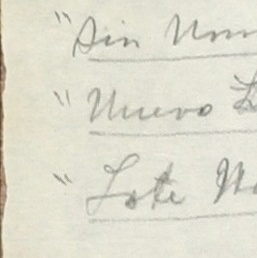 " Sin Nom
" Nuevo L
" Lote No